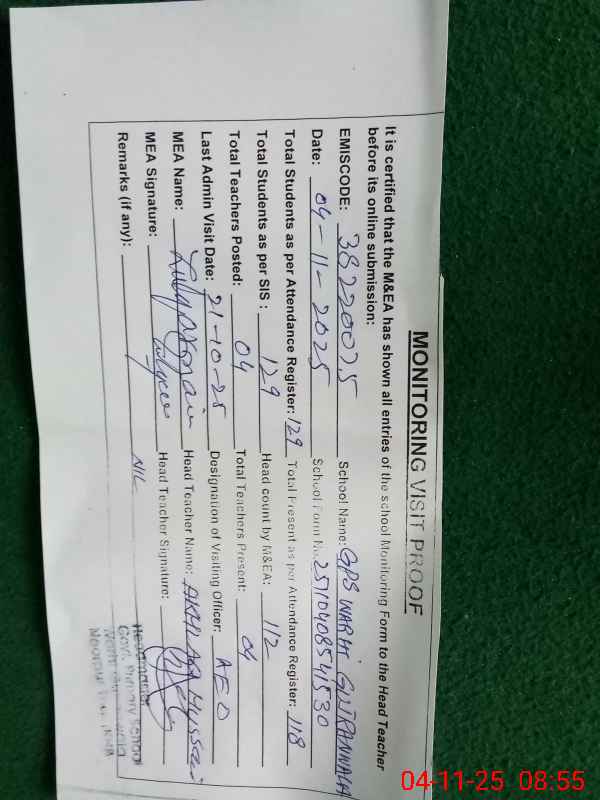 MONITORING VISIT PROOF
It is certified that the M&EA has shown all entries of the school Monitoring Form to the Head Teacher
before its online submission:
EMISCODE: 38220075 School Name: GPS WARHI
Date: 04-11-2025 School Form No: 25110408541530
Total Students as per Attendance Register: 129 Total Present as per Attendance Register: 118
Total Students as per SIS: 129 Head count by M&EA: 112
Total Teachers Posted: 04 Total Teachers Present: 04
Last Admin Visit Date: 21-10-25 Designation of Visiting Officer: AEO
MEA Name: Head Teacher Name: AKHLAQ HUSSAIN
MEA Signature: Head Teacher Signature:
Remarks (if any): NIL
Headmaster
Govt. Primary School
04-11-25 08:55